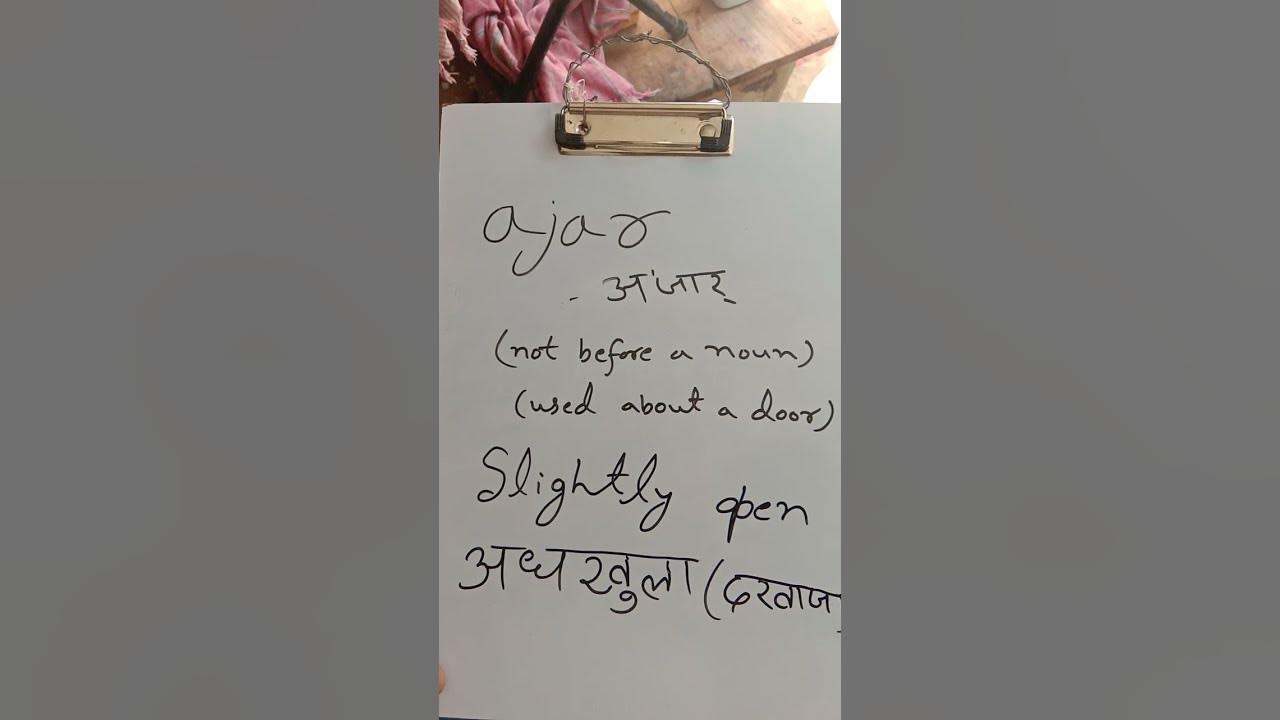 ajar
- अ'जार्
(not before a noun)
(used about a door)
Slightly open
अधखुला (दरवाज